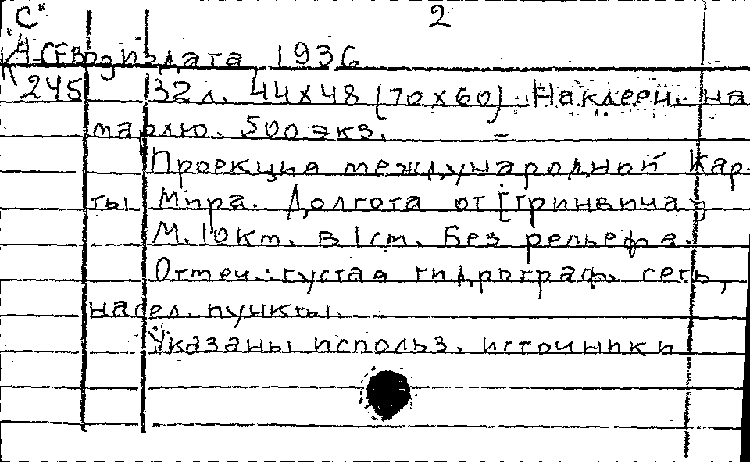 "С" 2
издата, 1936
245 32 л. 44х48 (70х60). Наклеен. на
марлю. 500 экз.
Проекция международной кар-
ты Мира. Долгота от [Гринвича]
М. 10км. в 1см. Без рельефа.
Отмеч.: густая гидрограф. сеть,
насел. пункты.
Указаны использ. источники